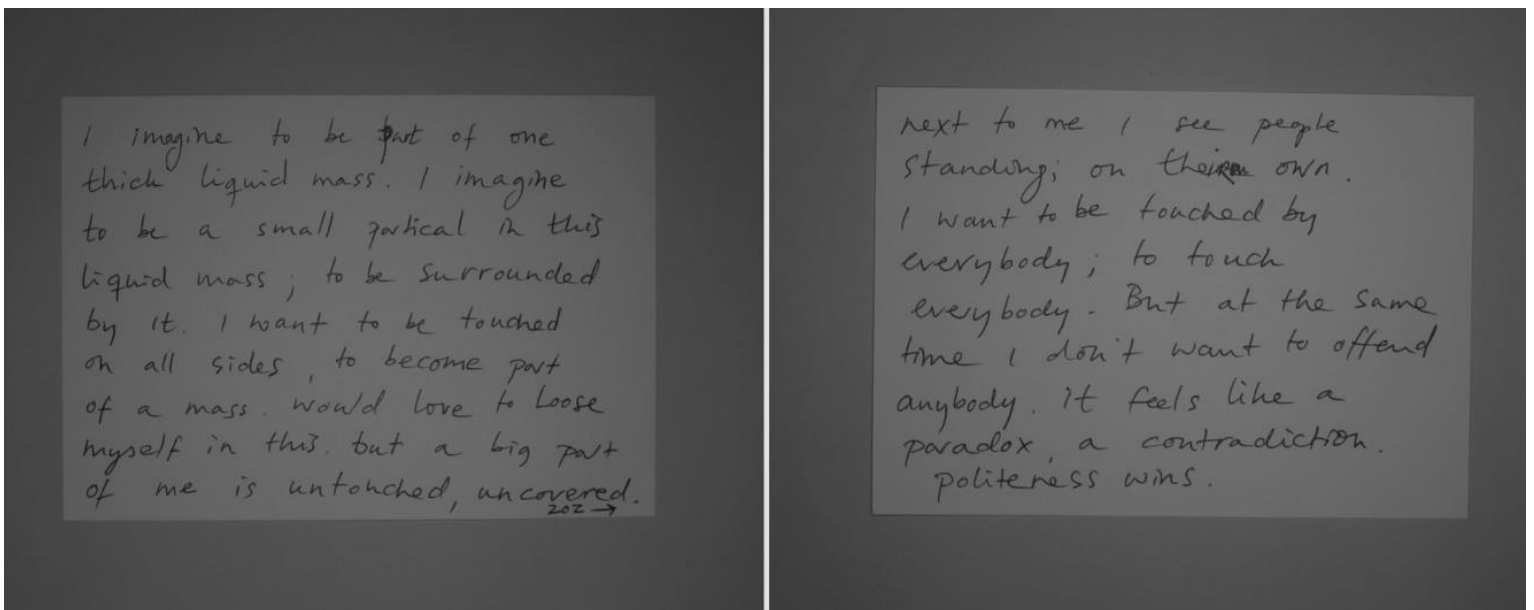 I imagine to be part of one
thick liquid mass. I imagine
to be a small partical in this
liquid mass; to be surrounded
by it. I want to be touched
on all sides, to become part
of a mass. would love to loose
myself in this. but a big part
of me is untouched, uncovered.
202 →
next to me I see people
standing; on their own.
I want to be touched by
everybody; to touch
everybody. But at the same
time I don't want to offend
anybody. it feels like a
paradox, a contradiction.
politeness wins.